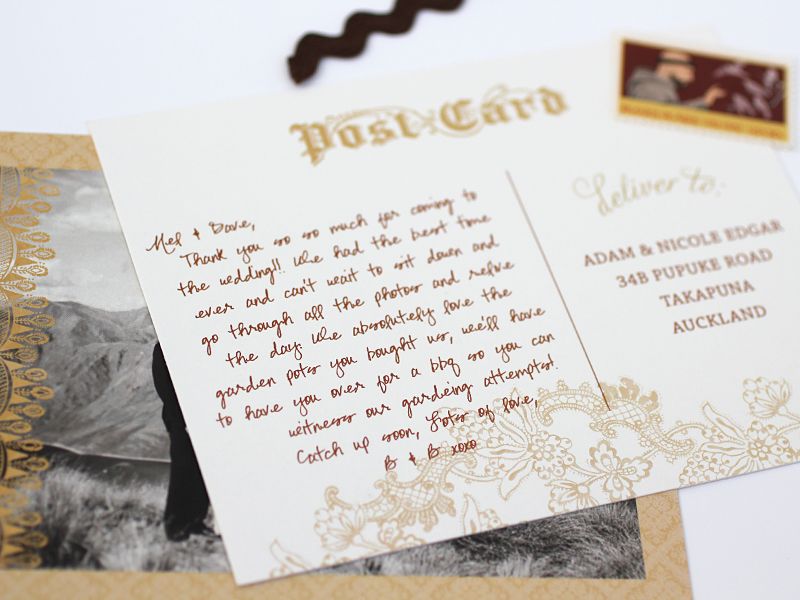 Post Card
Mel & Dave,
Thank you so so much for coming to
the wedding!! We had the best time
ever and can't wait to sit down and
go through all the photos and relive
the day. We absolutely love the
garden pots you bought us, we'll have
to have you over for a bbq so you can
witness our gardeing attempts!
Catch up soon, Lots of love,
B & B xoxo
Deliver to:
ADAM & NICOLE EDGAR
34B PUPUKE ROAD
TAKAPUNA
AUCKLAND